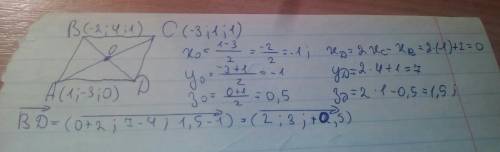 B(-2;4;1) C(-3;1;1)
O
A(1;-3;0) D
x₀ = (1-3)/2 = -2/2 = -1; x_D = 2x_C - x_B = 2(-1)+2=0
y₀ = (-3+1)/2 = -1 y_D = 2·4+1=7
z₀ = (0+1)/2 = 0,5 z_D = 2·1-0,5=1,5;
BD=(0+2; 7-4; 1,5-1)=(2; 3; +0,5)